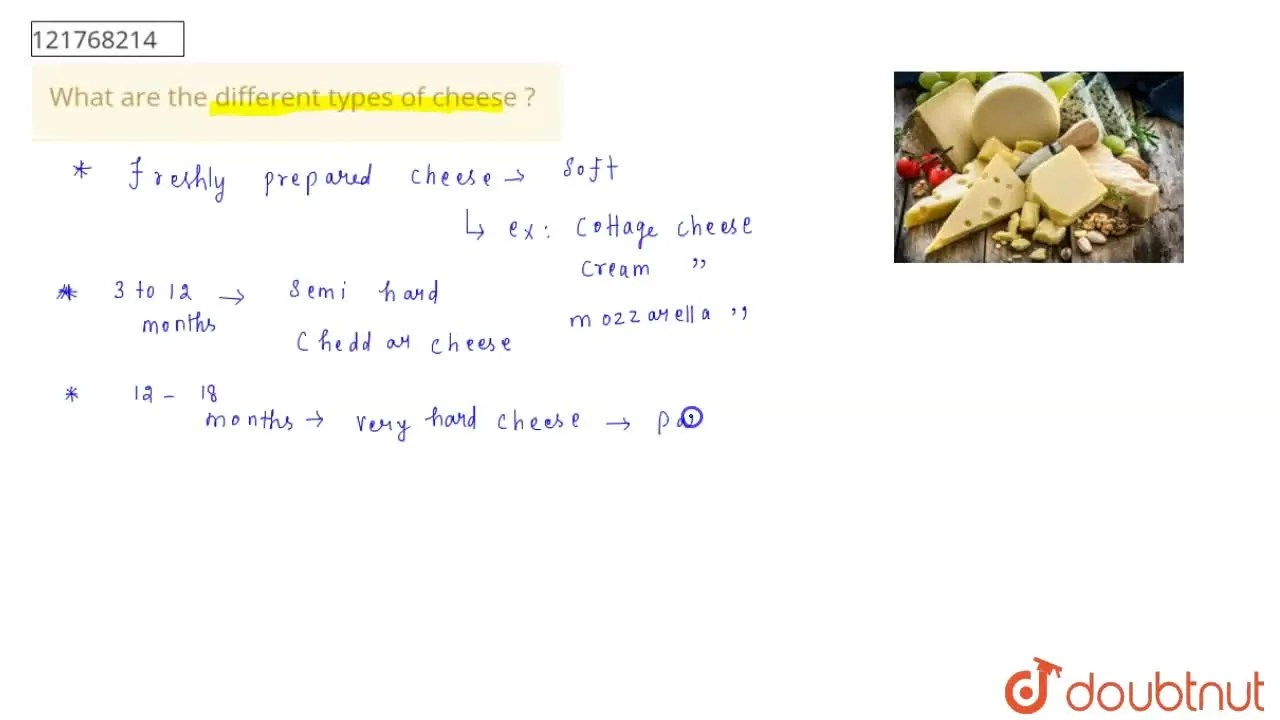 121768214
What are the different types of cheese ?
* Freshly prepared cheese → soft
↳ ex: Cottage cheese
cream ,,
mozzarella ,,
* 3 to 12 months → Semi hard
Cheddar cheese
* 12 - 18
months → very hard cheese → pa
doubtnut